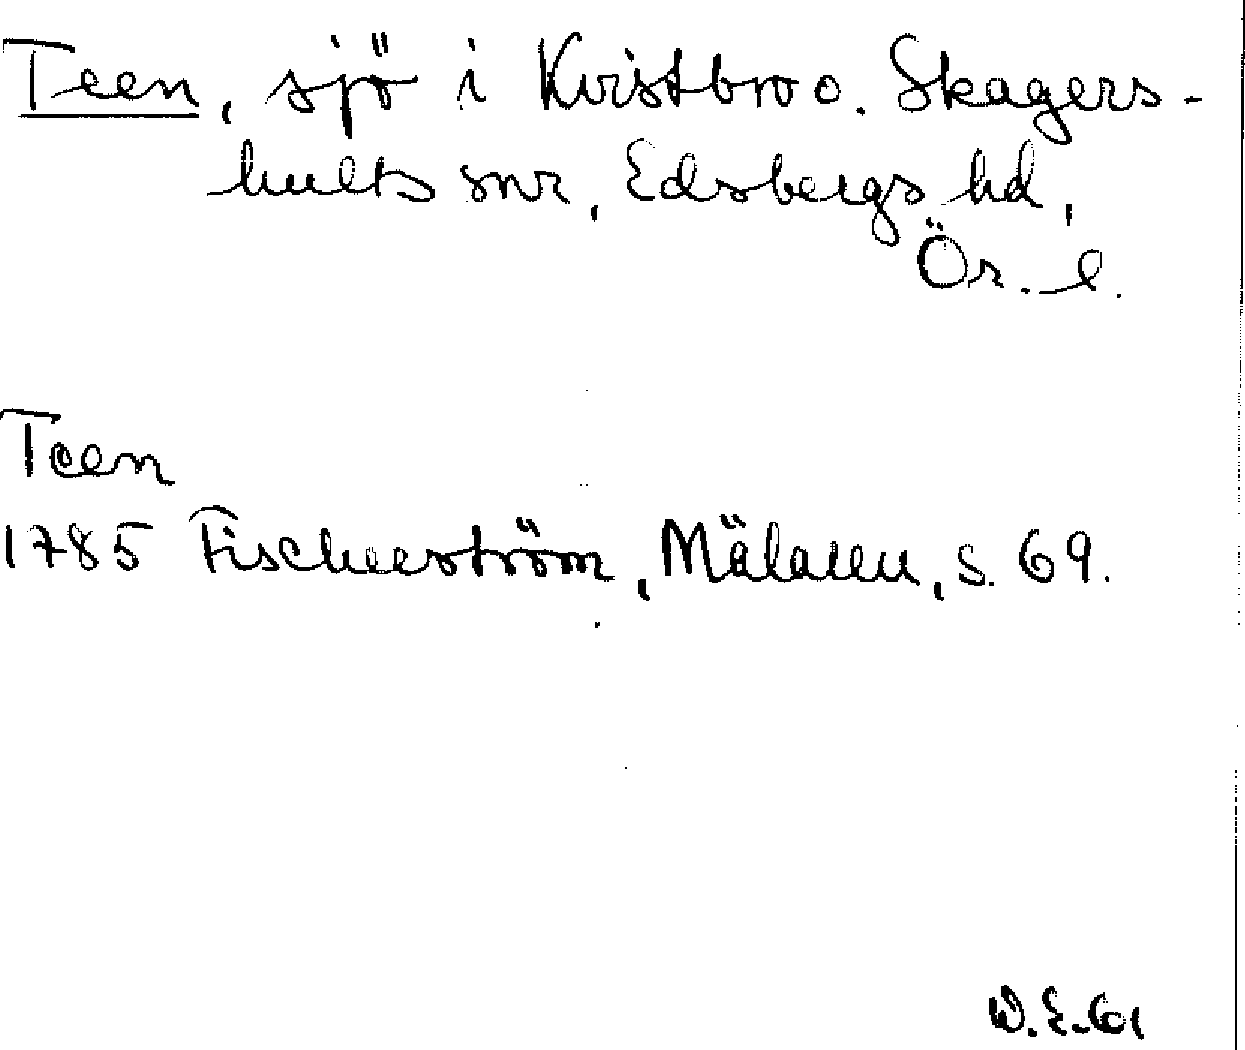 Teen, sjö i Kvistbro o. Skagers-
hults snr, Edsbergs hd,
Ör. l.
Teen
1785 Fischerström, Mälaren, s. 69.
W.E.-61